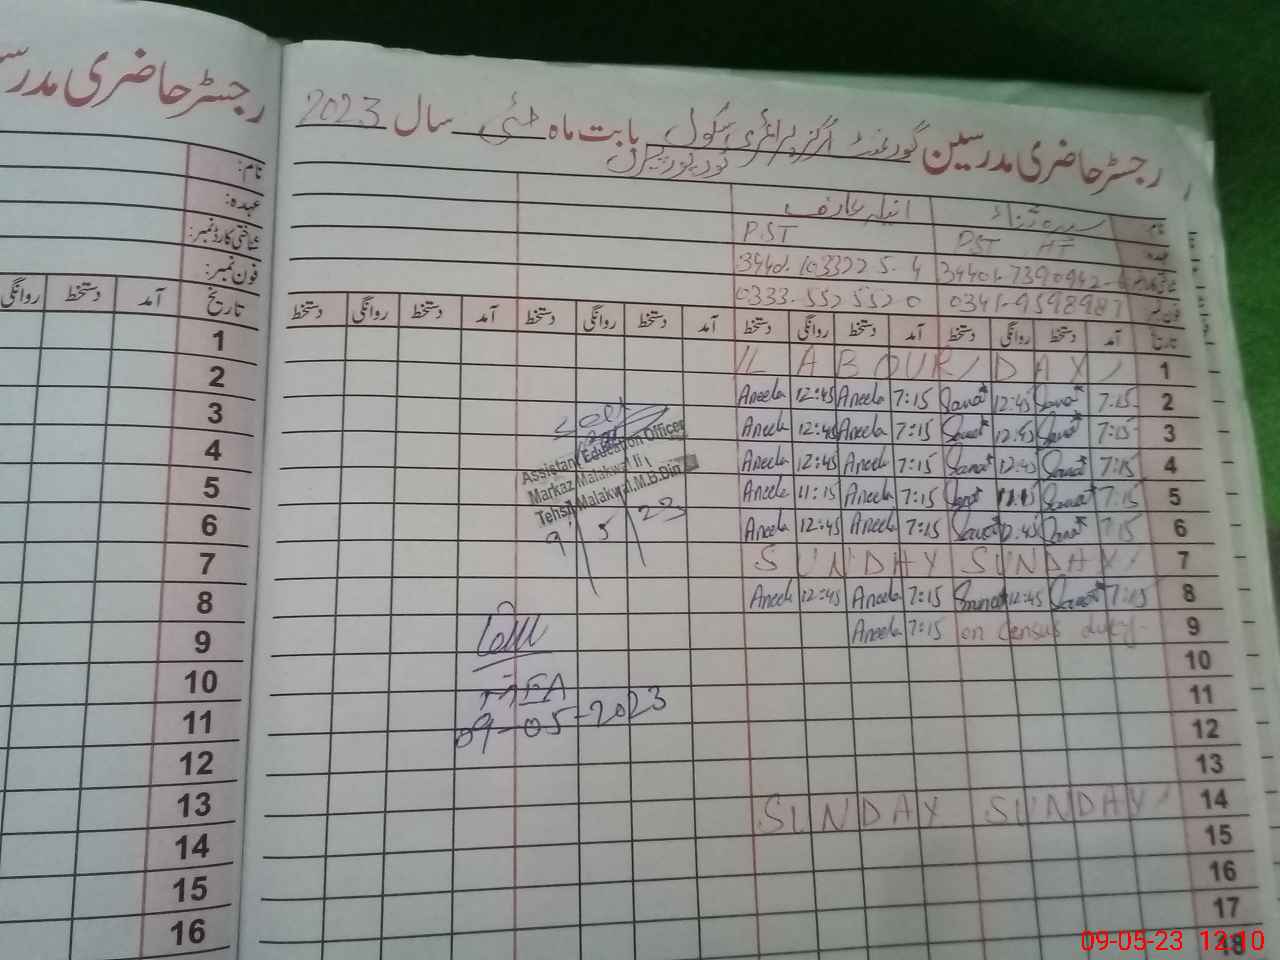 رجسٹر حاضری مدرسین گورنمنٹ گرلز پرائمری سکول بابت ماہ مئی سال 2023
نورپورپیراں
نام سیدہ ثناء انیلہ عارف
عہدہ PST HT PST
34401-7390942- 34401-1033225-4
فون نمبر 0341-9598987 0333-5525520
تاریخ آمد دستخط روانگی دستخط آمد دستخط روانگی دستخط آمد دستخط روانگی دستخط آمد دستخط روانگی دستخط
1 LABOUR DAY
2 7:15 Sana 12:45 Sana 7:15 Aneela 12:45 Aneela
3 7:15 Sana 12:45 Sana 7:15 Aneela 12:45 Aneela
4 7:15 Sana 12:45 Sana 7:15 Aneela 12:45 Aneela
5 7:15 Sana 11:15 Sana 7:15 Aneela 11:15 Aneela
6 7:15 Sana 12:45 Sana 7:15 Aneela 12:45 Aneela
7 SUNDAY SUNDAY
8 7:15 Sana 12:45 Sana 7:15 Aneela 12:45 Aneela
9 on census duty 7:15 Aneela
10
11
12
13
14 SUNDAY SUNDAY
15
16
17
18
Assistant Education Officer
Markaz Malakwal II
Tehsil Malakwal, M.B.Din
9/5/23
09-05-2023
رجسٹر حاضری
نام:
عہدہ:
شناختی کارڈ نمبر:
فون نمبر:
تاریخ آمد دستخط روانگی
1
2
3
4
5
6
7
8
9
10
11
12
13
14
15
16
09-05-23 12:10